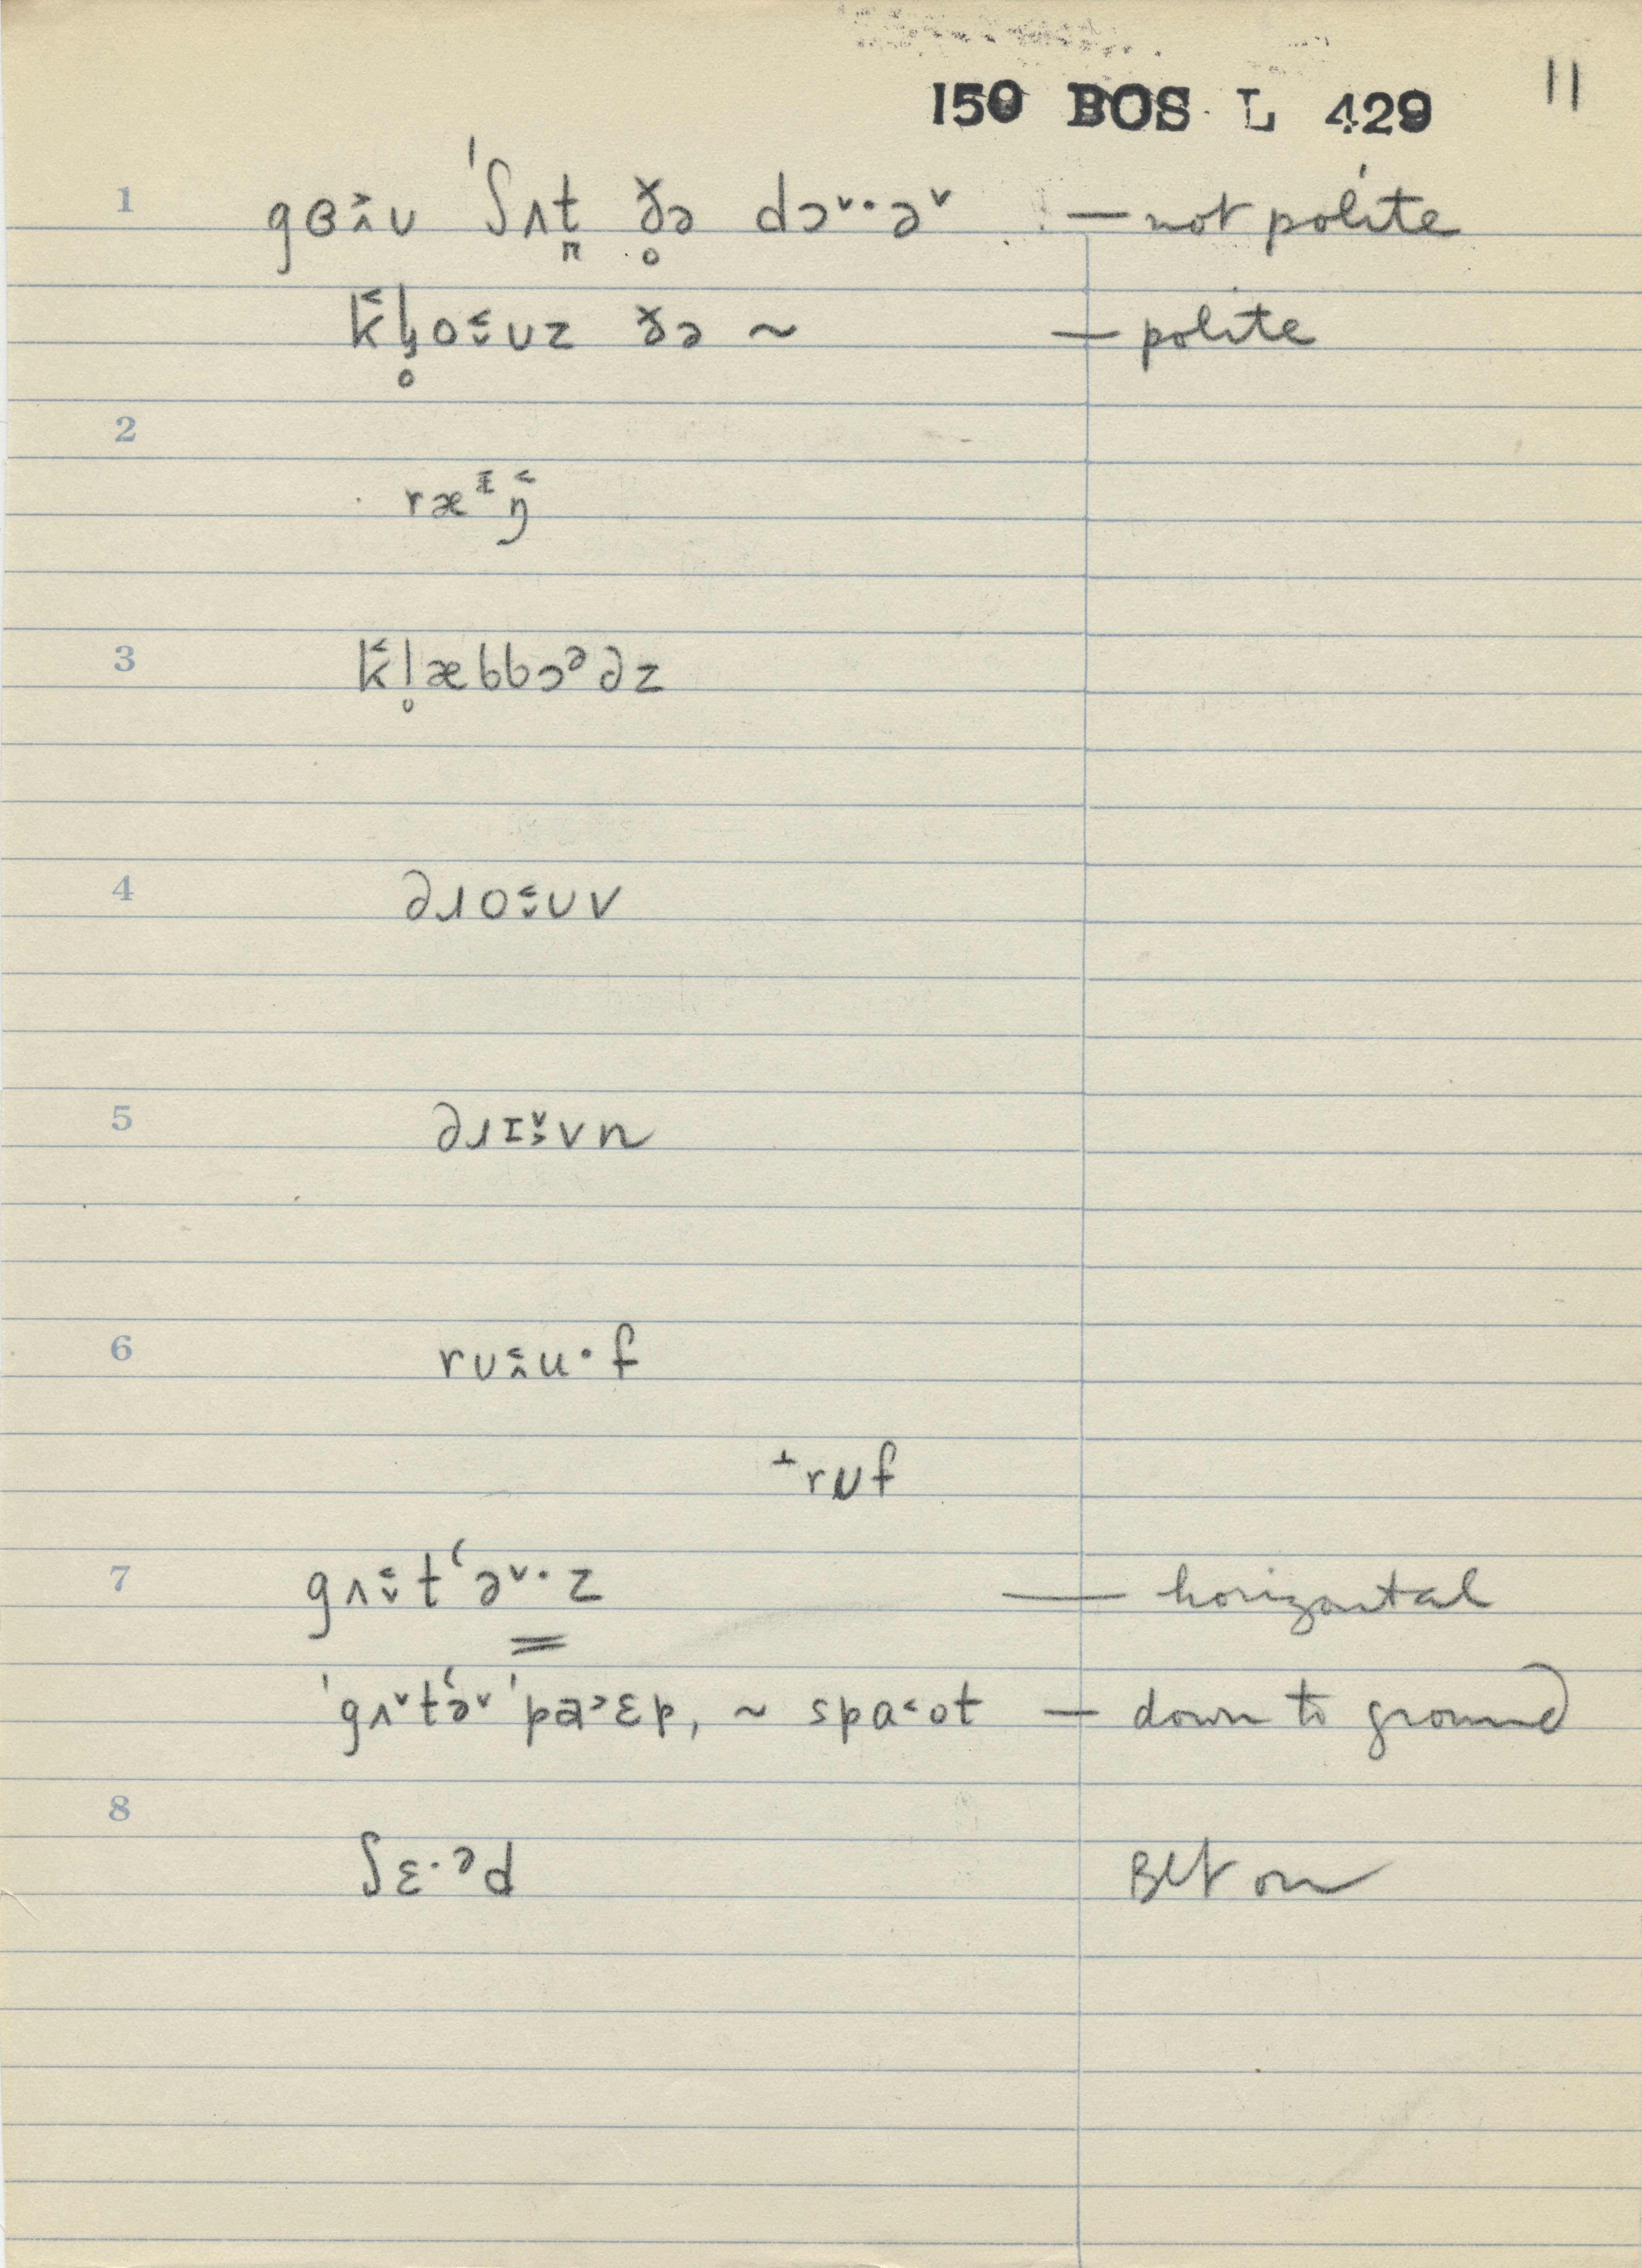 150 BOS L 429 11
1 gɞ˃˰ʊ ˈʃʌt̪ ð̥ə dɔˇ·əˇ — not polite
k̒l̥o˂ˬʊz ðə ~ — polite
2
ræᶤŋ˂
3 k̒l̥æbbɔᵊəz
4 əɹo˂ˬʊv
5 əɹɪˇ˃vn
6 rʊ˂˰u·f
⊥rʊf
7 gʌ˂ˬtʻəˇ·z — horizontal
ˈgʌˇtʻəˇ ˈpa˃ɛp, ~ spɑ˂ot — down to ground
8 ʃɛ·ᵊd BLt on